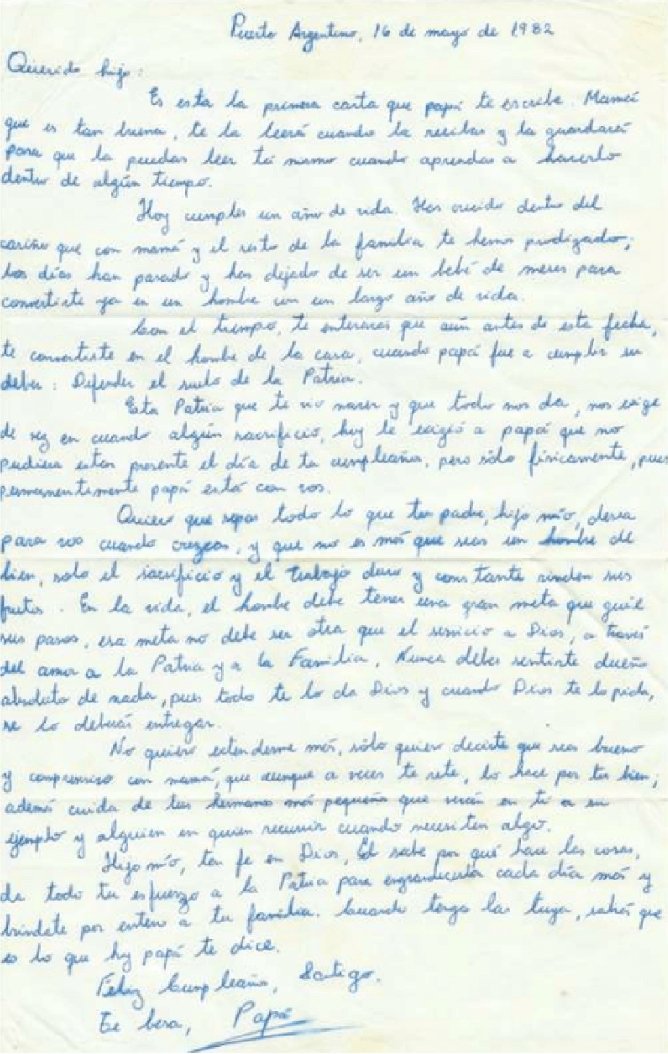 Puerto Argentino, 16 de mayo de 1982
Querido hijo:
Es esta la primera carta que papá te escribe. Mamá
que es tan buena, te la leerá cuando la recibas y la guardará
para que la puedas leer tú mismo cuando aprendas a hacerlo
dentro de algún tiempo.
Hoy cumples un año de vida. Has crecido dentro del
cariño que con mamá y el resto de la familia te hemos prodigado;
los días han pasado y has dejado de ser un bebé de meses para
convertirte ya en un hombre con un largo año de vida.
Con el tiempo, te enterarás que aún antes de esta fecha,
te convertiste en el hombre de la casa, cuando papá fue a cumplir su
deber: Defender el suelo de la Patria.
Esta Patria que te vio nacer y que todo nos da, nos exige
de vez en cuando algún sacrificio, hoy le exigió a papá que no
pudiera estar presente el día de tu cumpleaños, pero sólo físicamente, pues
permanentemente papá está con vos.
Quiero que sepas todo lo que tu padre, hijo mío, desea
para vos cuando crezcas, y que no es más que seas un hombre de
bien, solo el sacrificio y el trabajo duro y constante rinden sus
frutos. En la vida, el hombre debe tener una gran meta que guíe
sus pasos, esa meta no debe ser otra que el servicio a Dios, a través
del amor a la Patria y a la Familia. Nunca debes sentirte dueño
absoluto de nada, pues todo te lo da Dios y cuando Dios te lo pida,
se lo deberás entregar.
No quiero extenderme más, sólo quiero decirte que seas bueno
y comprensivo con mamá, que aunque a veces te rete, lo hace por tu bien;
además cuida de tus hermanos más pequeños que verán en ti a su
ejemplo y alguien en quien recurrir cuando necesiten algo.
Hijo mío, ten fe en Dios, Él sabe por qué hace las cosas,
da todo tu esfuerzo a la Patria para engrandecerla cada día más y
brindate por entero a tu familia. Cuando tengas la tuya, sabrás que
es lo que hoy papá te dice.
Feliz Cumpleaños,
Te besa, Papá